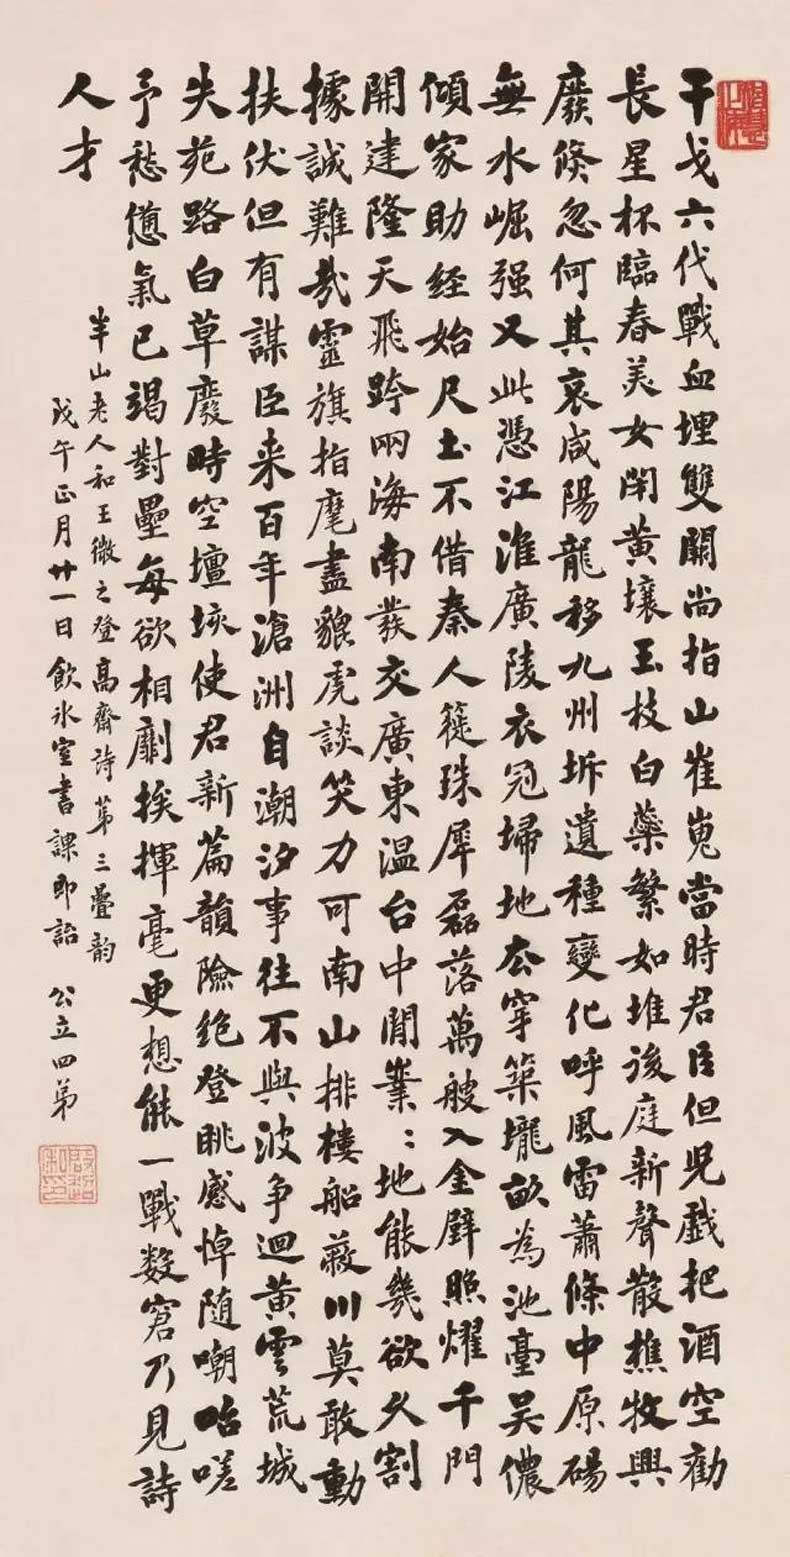 干戈六代戰血埋雙闕尚指山崔嵬當時君臣但兒戲把酒空勸
長星杯臨春美女閉黃壤玉枝白蘂繁如堆後庭新聲散樵牧興
廢倏忽何其哀咸陽龍移九州坼遺種變化呼風雷蕭條中原碭
無水崛强又此憑江淮廣陵衣冠掃地去穿築壠畝為池臺吴儂
傾家助經始尺土不借秦人簁珠犀磊落萬艘入金璧照燿千門
開建隆天飛跨兩海南發交廣東温台中間業〻地能幾欲久割
據誠難哉靈旗指麾盡貔虎談笑力可南山排樓船蔽川莫敢動
扶伏但有謀臣来百年滄洲自潮汐事往不與波争迴黄雲荒城
失苑路白草廢時空壇垓使君新篇韻險絶登眺感悼随嘲咍嗟
予愁憊氣已竭對壘每欲相劘挨揮毫更想能一戰数窘乃見詩
人才
半山老人和王微之登高齋詩第三疊韵
戊午正月廿一日飲氷室書課即詒 公立四弟